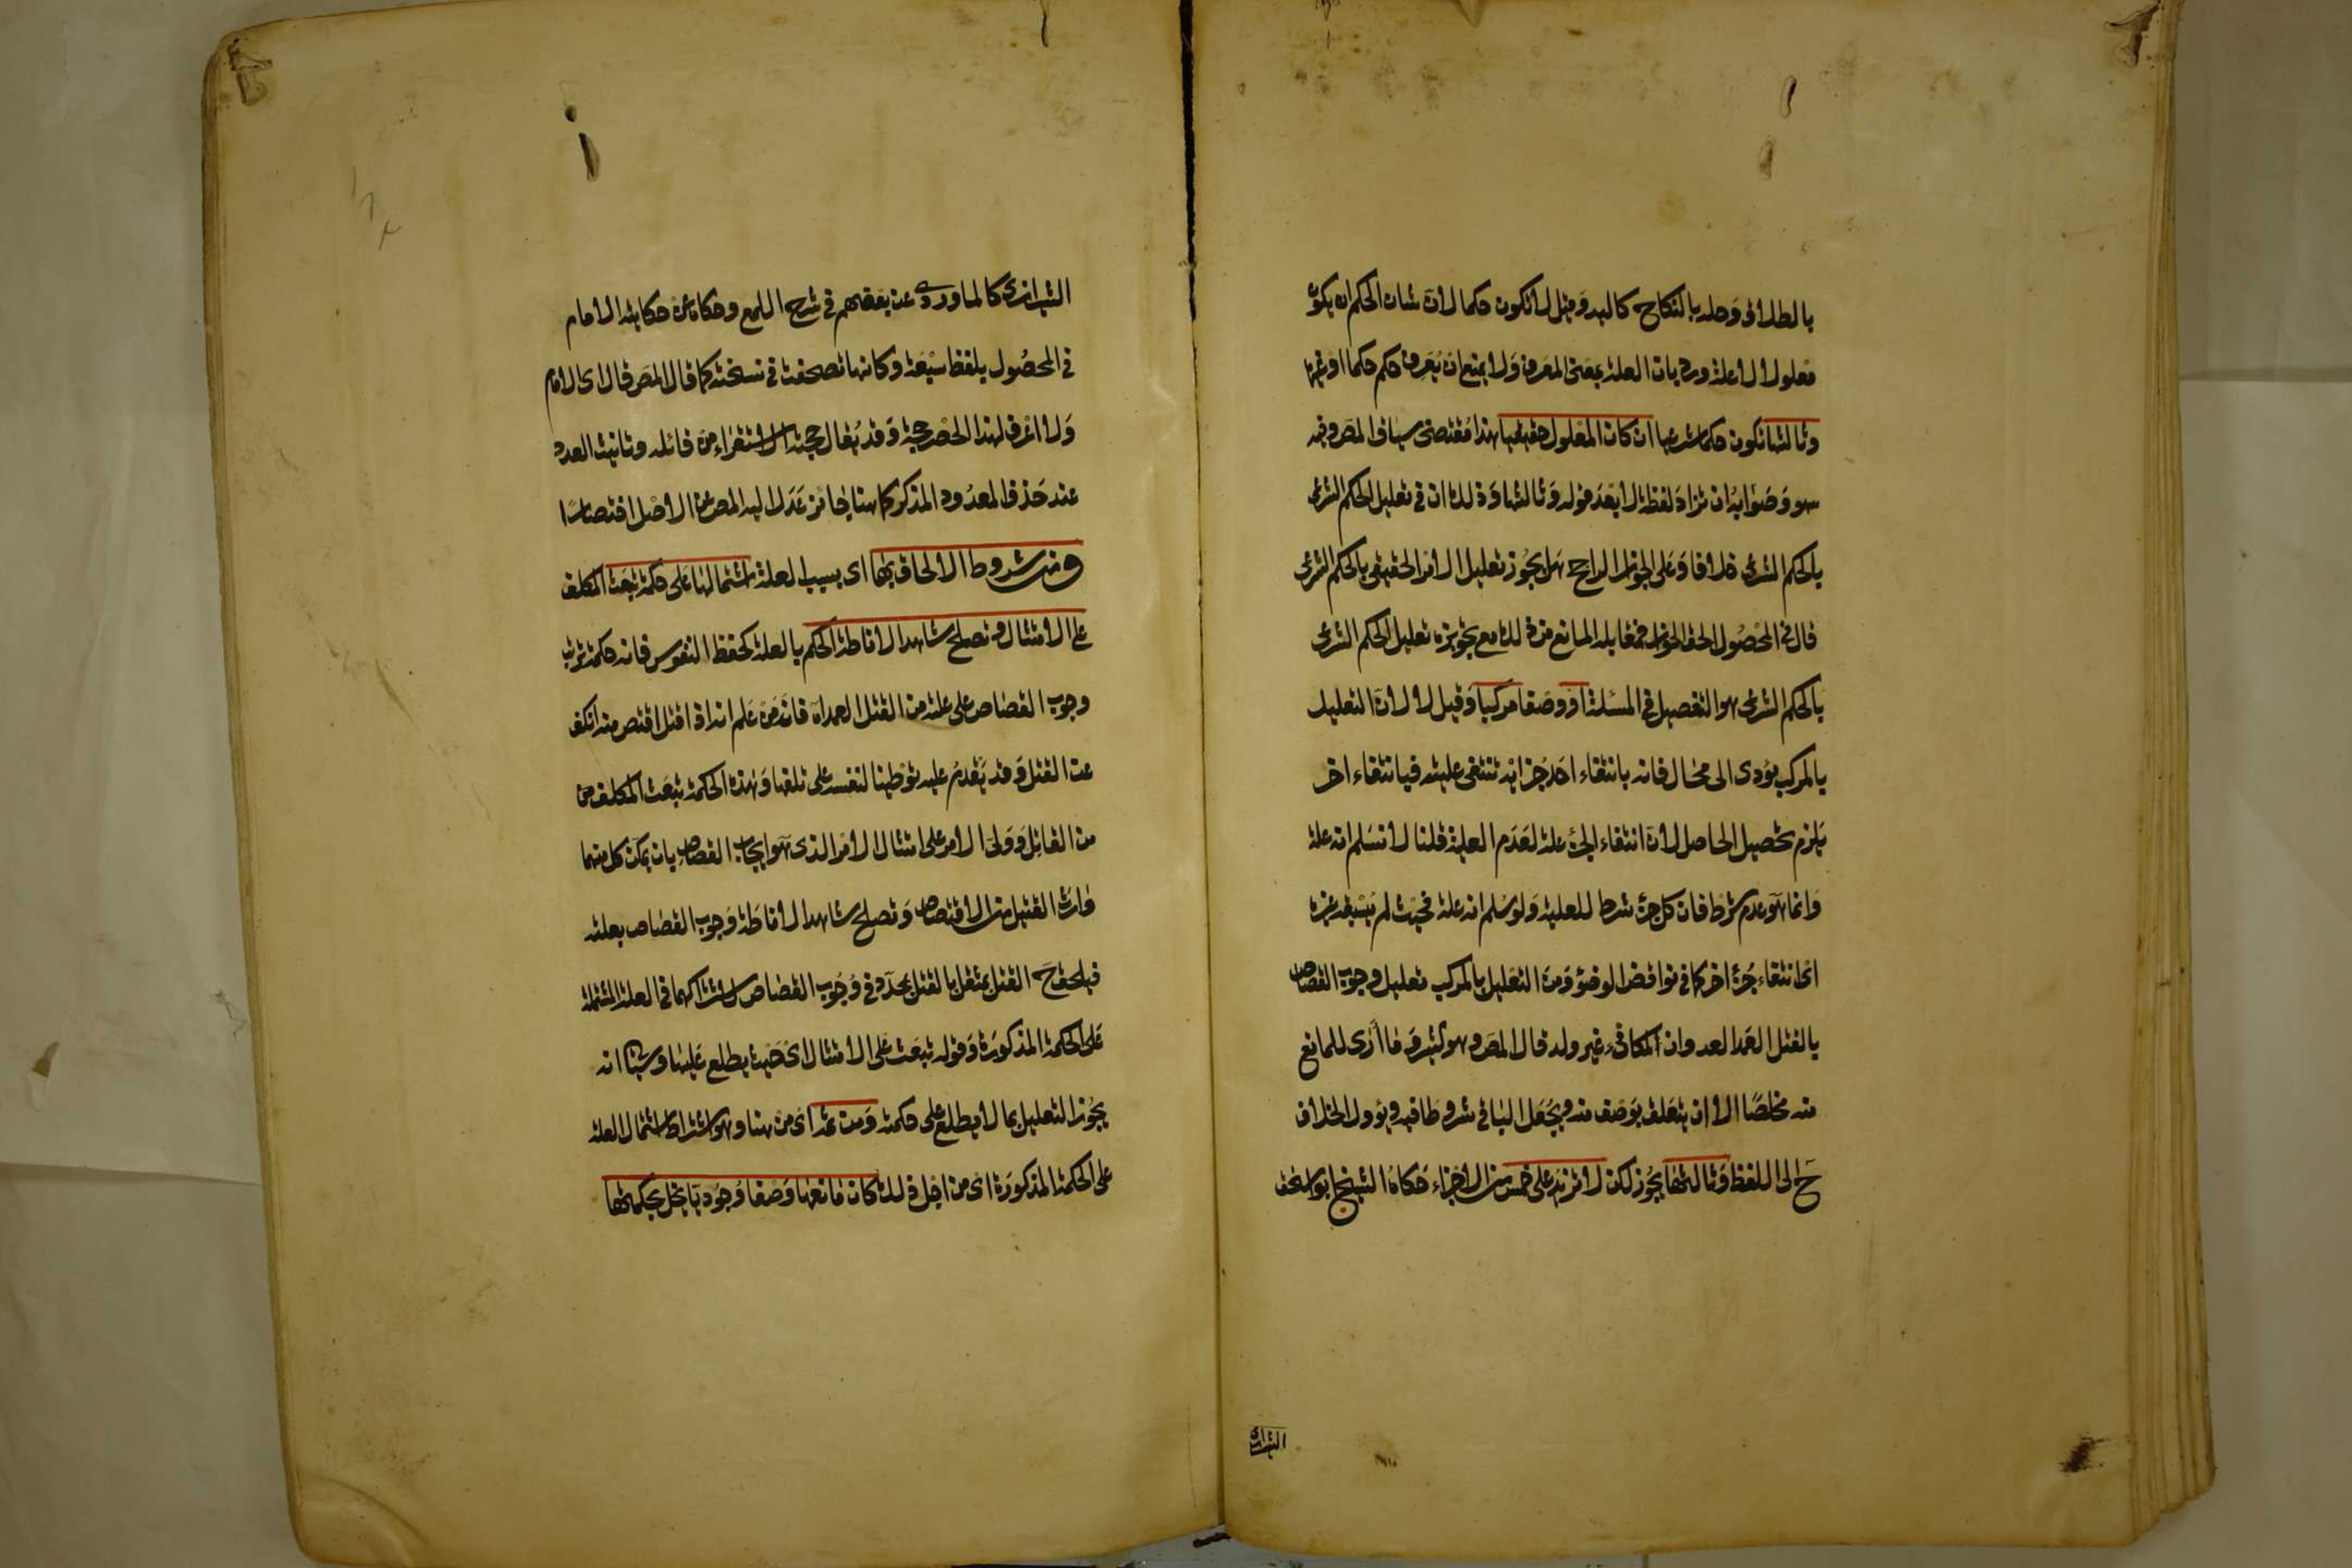 بالطلاق وحله بالنكاح كاليد وقيل لا تكون حكما لان شان الحكم ان يكون
معلولا لا علة ورد بان العلة بمعنى المعرف ولا يمتنع ان يعرف حكم حكما او غيره
وثالثها تكون حكما شرعيا ان كان المعلول حقيقيا هذا مقتضى سياق المص وفيه
سهو وصوابه ان تزاد لفظة لا بعد قوله وثالثها وذلك ان في تعليل الحكم الشرعى
بالحكم الشرعى خلافا وعلى الجواز الراجح هل يجوز تعليل الامر الحقيقى بالحكم الشرعى
قال في المحصول الحق الجواز فمقابله المانع من ذلك مع تجويزه تعليل الحكم الشرعى
بالحكم الشرعى هو التفصيل في المسئلة او وصفا مركبا وقيل لا لان التعليل
بالمركب يؤدى الى محال فانه بانتفاء احد جزائه تنتفى عليته فبانتفاء اخر
يلزم تحصيل الحاصل لان انتفاء الجزء علة لعدم العلية قلنا لا نسلم انه علة
وانما هو عدم شرط فان كل جزء شرط للعلية ولو سلم انه علة فحيث لم يسبقه غيره
اى انتفاء جزء اخر كما في نواقض الوضوء ومن التعليل بالمركب تعليل وجوب القصاص
بالقتل العمد العدوان المكافئ غير ولد قال المص وهو كثير وما ارى للمانع
منه مخلصا الا ان يتعلق بوصف منه ويجعل الباقي شروطا فيه ويؤول الخلاف
ح الى اللفظ وثالثها يجوز لكن لا تزيد على خمس من الاجزاء حكاه الشيخ ابو اسحق
الشيرازى
الشيرازى كالماوردى عن بعضهم في شرح اللمع وحكاه عن حكايته الامام
في المحصول بلفظ سبعة وكانها تصحفت في نسخته كما قال المص قال اى الامام
ولا اعرف لهذا الحصر حجة وقد يقال حجته الاستقراء من قائله وتانيث العدد
عند حذف المعدود المذكر كما هنا جائز عدل اليه المص عن الاصل اختصارا
ومن شروط الالحاق بها اى بسبب العلة اشتمالها على حكمة تبعث المكلف
على الامتثال وتصلح شاهدا لاناطة الحكم بالعلة كحفظ النفوس فانه حكمة ترتب
وجوب القصاص على علته من القتل العمد اه فان من علم انه اذا قتل اقتص منه انكف
عن القتل وقد يقدم عليه توطينا لنفسه على تلفها وهذه الحكمة تبعث المكلف من
من القاتل وولى الامر على امتثال الامر الذى هو ايجاب القصاص بان يمكن كل منهما
وارث القتيل من الاقتصاص وتصلح شاهدا لاناطة وجوب القصاص بعلته
فيلحق ح القتل بمثقل بالقتل بمحدد في وجوب القصاص لاشتراكهما في العلة المشتملة
على الحكمة المذكورة وقوله تبعث على الامتثال اى حيث يطلع عليها وسياتى انه
يجوز التعليل بما لا يطلع على حكمته ومن ثم اى من هنا وهو اشتراط اشتمال العلة
على الحكمة المذكورة اى من اجل ذلك كان مانعها وصفا وجوديا يخل بحكمتها